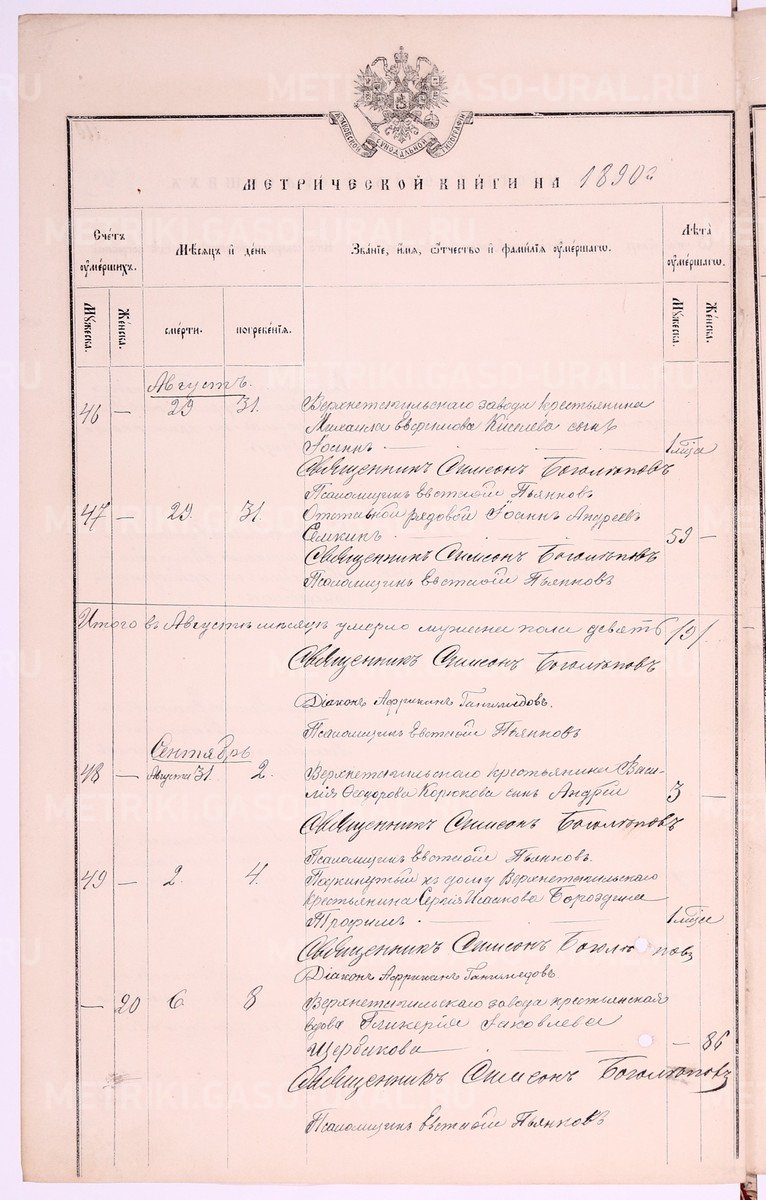 МОСКОВСКОЙ СѴНОДАЛЬНОЙ ТИПОГРАФІИ
МЕТРИЧЕСКОЙ КНИГИ НА 1890 г
Счетъ оумершихъ.
Мѣсяцъ и день
Званїе, имя, отчество и фамилїя оумершагѡ.
Лѣта оумершагѡ.
Мужеска.
Женска.
смерти.
погребенїя.
Мужеска.
Женска.
Августъ.
46 — 29 31. Верхнетагильскаго завода крестьянина
Михаила Киселева сынъ
Іоаннъ — 1 мѣсца
Священникъ Симеонъ Боголюповъ
Псаломщикъ Евстафій Пьянковъ
47 — 29. 31. Отставной рядовой Іоаннъ Андреевъ
Семкинъ — 59 —
Священникъ Симеонъ Боголюповъ
Псаломщикъ Евстафій Пьянковъ
Итого въ Августѣ мѣсяцѣ умерло мужска пола девять /9/
Священникъ Симеонъ Боголюповъ
Діаконъ Африканъ Ганимедовъ.
Псаломщикъ Евстафій Пьянковъ
Сентябрь
48 — Августа 31. 2. Верхнетагильскаго крестьянина Васи-
лія Ѳеодорова Корюкова сынъ Андрей 3 —
Священникъ Симеонъ Боголюповъ
Псаломщикъ Евстафій Пьянковъ.
49 — 2. 4. Подкинутый къ дому Верхнетагильскаго
крестьянина Сергія Исакова Бороздина
Трофимъ — 1 мѣсца
Священникъ Симеонъ Боголюповъ
Діаконъ Африканъ Ганимедовъ
— 20 6. 8 Верхнетагильскаго завода крестьянская
вдова Гликерія Іаковлева
Щербакова — — 86
Священникъ Симеонъ Боголюповъ
Псаломщикъ Евстафій Пьянковъ
METRIKI.GASO-URAL.RU